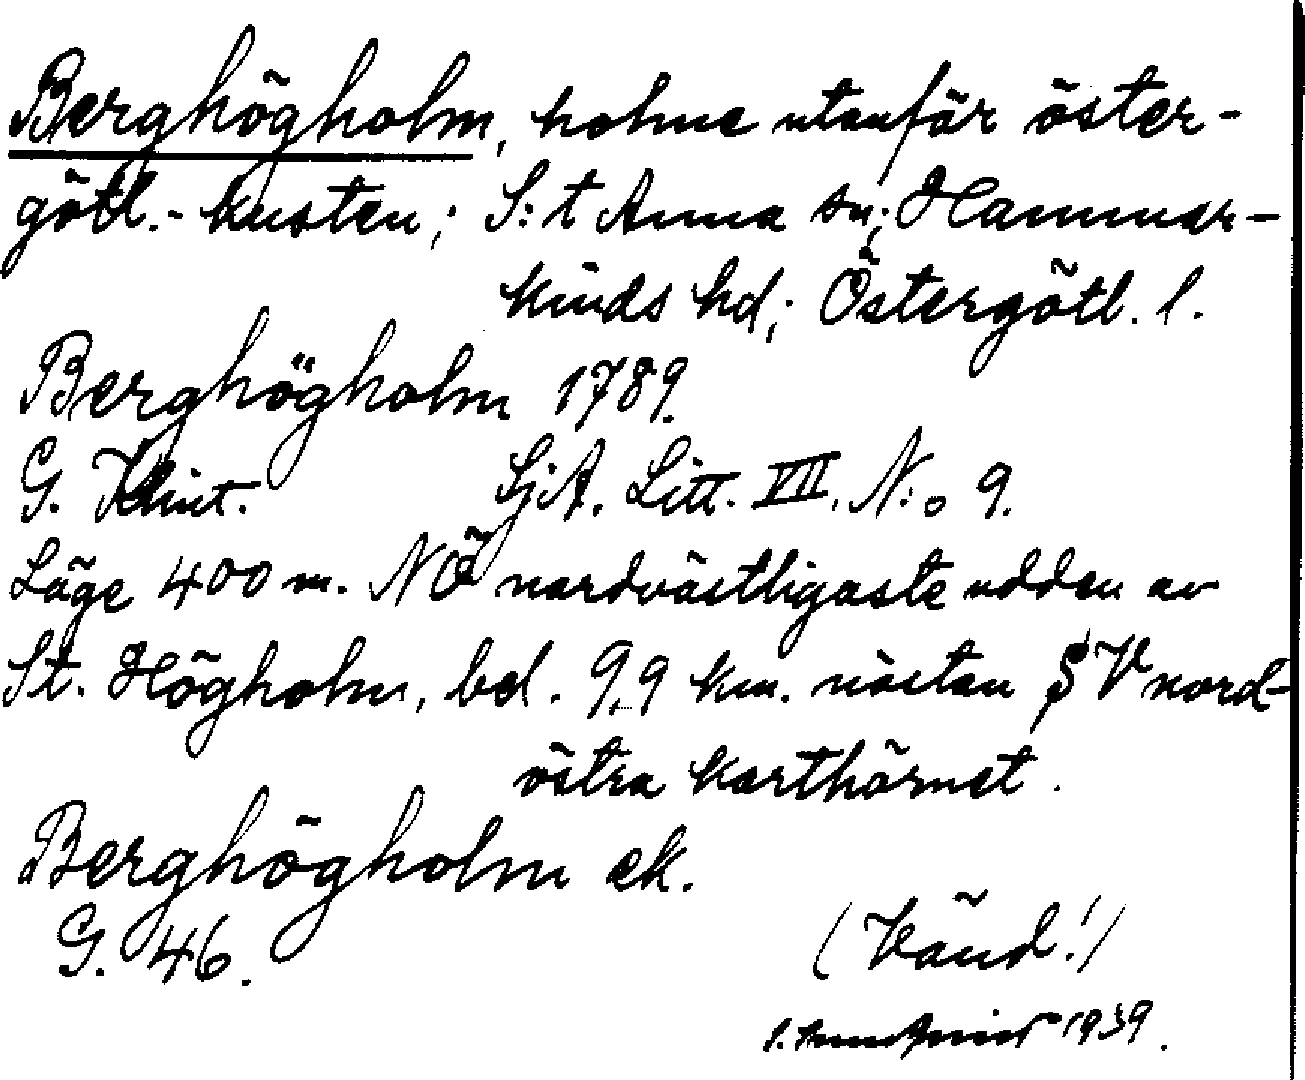 Berghögholm, holme utanför öster-
götl.- kusten; S:t Anna sn; Hammar-
kinds hd; Östergötl. l.
Berghögholm 1789.
G. Klint. SjA. Litt. VII. N:o 9.
Läge 400 m. NÖ nordvästligaste udden av
St. Högholm, bel. 9,9 km. nästan SV nord-
östra karthörnet.
Berghögholm ek.
G. 46.
(Vänd!)
1939.